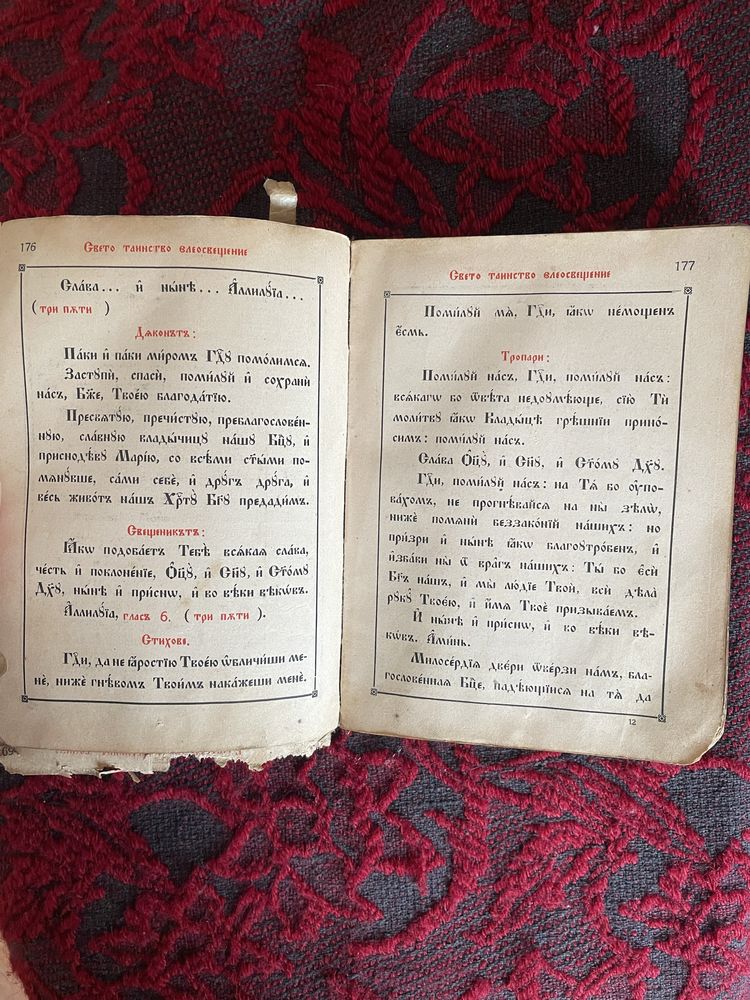 176
Свето таинство елеосвещение
Сла́ва... и҆ ны́нѣ... А҆ллилꙋ́їа...
(три пѫти )
Дѧконътъ:
Па́ки и҆ па́ки ми́ромъ Гдⷭ҇ꙋ помо́лимсѧ.
Застꙋпѝ, спасѝ, поми́лꙋй и҆ сохранѝ
на́съ, Бж҃е, Твое́ю благода́тїю.
Пресвѧтꙋ́ю, пречи́стꙋю, преблагослове́н-
нꙋю, сла́внꙋю влады́чицꙋ на́шꙋ Бцⷣꙋ, и҆
приснодѣ́вꙋ Марі́ю, со всѣ́ми ст҃ы́ми по-
мѧнꙋ́вше, са́ми себѐ, и҆ дрꙋ́гъ дрꙋ́га, и҆
ве́сь живо́тъ на́шъ Хрⷭ҇тꙋ̀ Бг҃ꙋ предади́мъ.
Свещеникътъ:
Ꙗ҆́кѡ подоба́етъ Тебѣ̀ всѧ́каѧ сла́ва,
че́сть и҆ поклоне́нїе, Ѻ҆ц҃ꙋ̀, и҆ Сн҃ꙋ, и҆ Ст҃о́мꙋ
Дх҃ꙋ, ны́нѣ и҆ при́снѡ, и҆ во вѣ́ки вѣкѡ́въ.
А҆ллилꙋ́їа, гласъ 6. ( три пѫти ).
Стихове.
Гдⷭ҇и, да не ꙗ҆́ростїю Твое́ю ѡ҆бличи́ши ме-
нѐ, нижѐ гнѣ́вомъ Твои́мъ нака́жеши менѐ.
69
177
Свето таинство елеосвещение
Поми́лꙋй мѧ̀, Гдⷭ҇и, ꙗ҆́кѡ не́мощенъ
є҆́смь.
Тропари:
Поми́лꙋй на́съ, Гдⷭ҇и, поми́лꙋй на́съ:
всѧ́кагѡ бо ѿвѣ́та недоꙋмѣ́юще, сїю̀ Тѝ
моли́твꙋ ꙗ҆́кѡ Влады́цѣ грѣ́шнїи прино́-
симъ: поми́лꙋй на́съ.
Сла́ва Ѻ҆ц҃ꙋ̀, и҆ Сн҃ꙋ, и҆ Ст҃о́мꙋ Дх҃ꙋ.
Гдⷭ҇и, поми́лꙋй на́съ: на Тѧ̀ бо ᲂу҆по-
ва́хомъ, не прогнѣ́вайсѧ на ны̀ ѕѣлѡ̀,
нижѐ помѧнѝ беззако́нїй на́шихъ: но
при́зри и҆ ны́нѣ ꙗ҆́кѡ благоꙋтро́бенъ, и҆
и҆зба́ви ны̀ ѿ вра̑гъ на́шихъ: Ты́ бо є҆сѝ
Бг҃ъ на́шъ, и҆ мы̀ лю́дїе Твоѝ, всѝ дѣ́ла
рꙋкꙋ̀ Твоє́ю, и҆ и҆́мѧ Твоѐ призыва́емъ.
И҆ ны́нѣ и҆ при́снѡ, и҆ во вѣ́ки вѣ-
кѡ́въ. А҆ми́нь.
Милосе́рдїѧ две́ри ѿве́рзи на́мъ, бла-
гослове́ннаѧ Бцⷣе, надѣ́ющїисѧ на тѧ̀ да
12